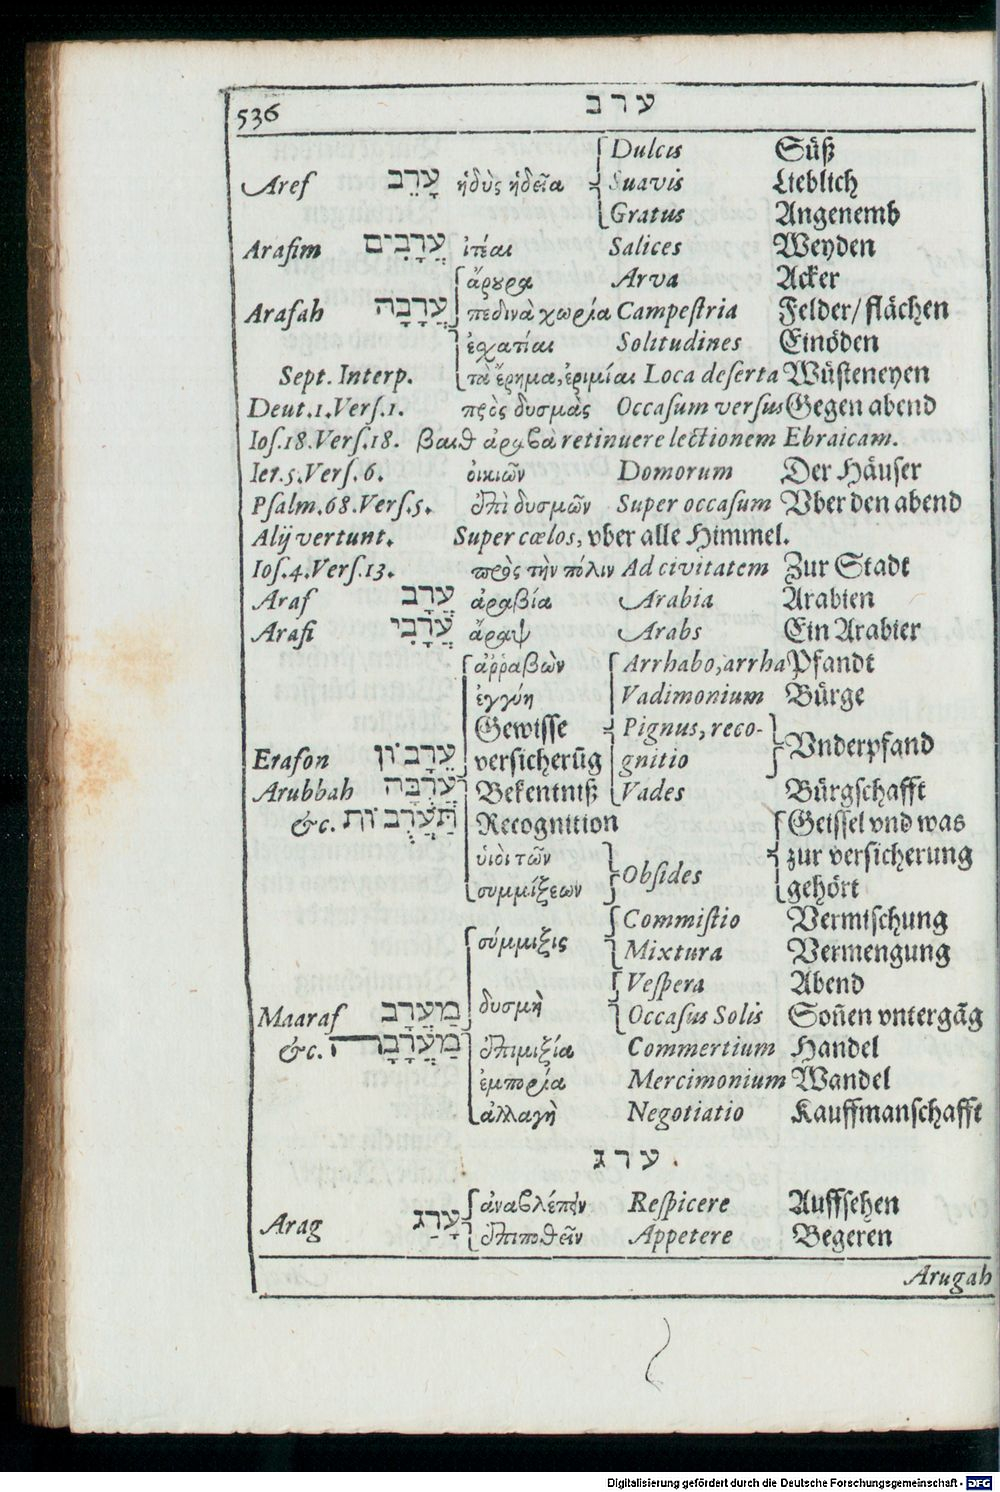 536 ערב
Dulcis Süß
Aref עָרֵב ἡδὺς ἡδεῖα Suavis Lieblich
Gratus Angenemb
Arafim עֲרָבִים ἰτέαι Salices Weyden
ἄρουρα Arva Acker
Arafah עֲרָבָה πεδινὰ χωρία Campestria Felder/ flächen
ἐχατίαι Solitudines Einöden
Sept. Interp. τὰ ἔρημα, ἐριμίαι Loca deserta Wüsteneyen
Deut. 1. Vers. 1. πρὸς δυσμὰς Occasum versus Gegen abend
Ios. 18. Vers. 18. βαιθ ἀραβὰ retinuere lectionem Ebraicam.
Ier. 5. Vers. 6. οἰκιῶν Domorum Der Häuser
Psalm. 68. Vers. 5. ἐπὶ δυσμῶν Super occasum Vber den abend
Alij vertunt. Super cœlos, vber alle Himmel.
Ios. 4. Vers. 13. πρὸς τὴν πόλιν Ad civitatem Zur Stadt
Araf עֲרָב ἀραβία Arabia Arabien
Arafi עֲרָבִי ἄραψ Arabs Ein Arabier
ἀῤῥαβὼν Arrhabo, arrha Pfandt
ἐγγύη Vadimonium Bürge
Gewisse Pignus, reco-
Erafon עֵרָבוֹן versicherūg gnitio Vnderpfand
Arubbah עֲרֻבָּה Bekentniß Vades Bürgschafft
&c. תַּעֲרֻבוֹת Recognition Geissel vnd was
ὑιοὶ τῶν zur versicherung
συμμίξεων Obsides gehört
Commistio Vermischung
σύμμιξις Mixtura Vermengung
Vespera Abend
Maaraf מַעֲרָב δυσμὴ Occasus Solis Soñen vntergāg
&c. מַעֲרָבָה ἐπιμιξία Commertium Handel
ἐμπορία Mercimonium Wandel
ἀλλαγὴ Negotiatio Kauffmanschafft
ערג.
ἀναβλέπειν Respicere Auffsehen
Arag עָרַג ἐπιποθεῖν Appetere Begeren
Arugah
Digitalisierung gefördert durch die Deutsche Forschungsgemeinschaft - DFG